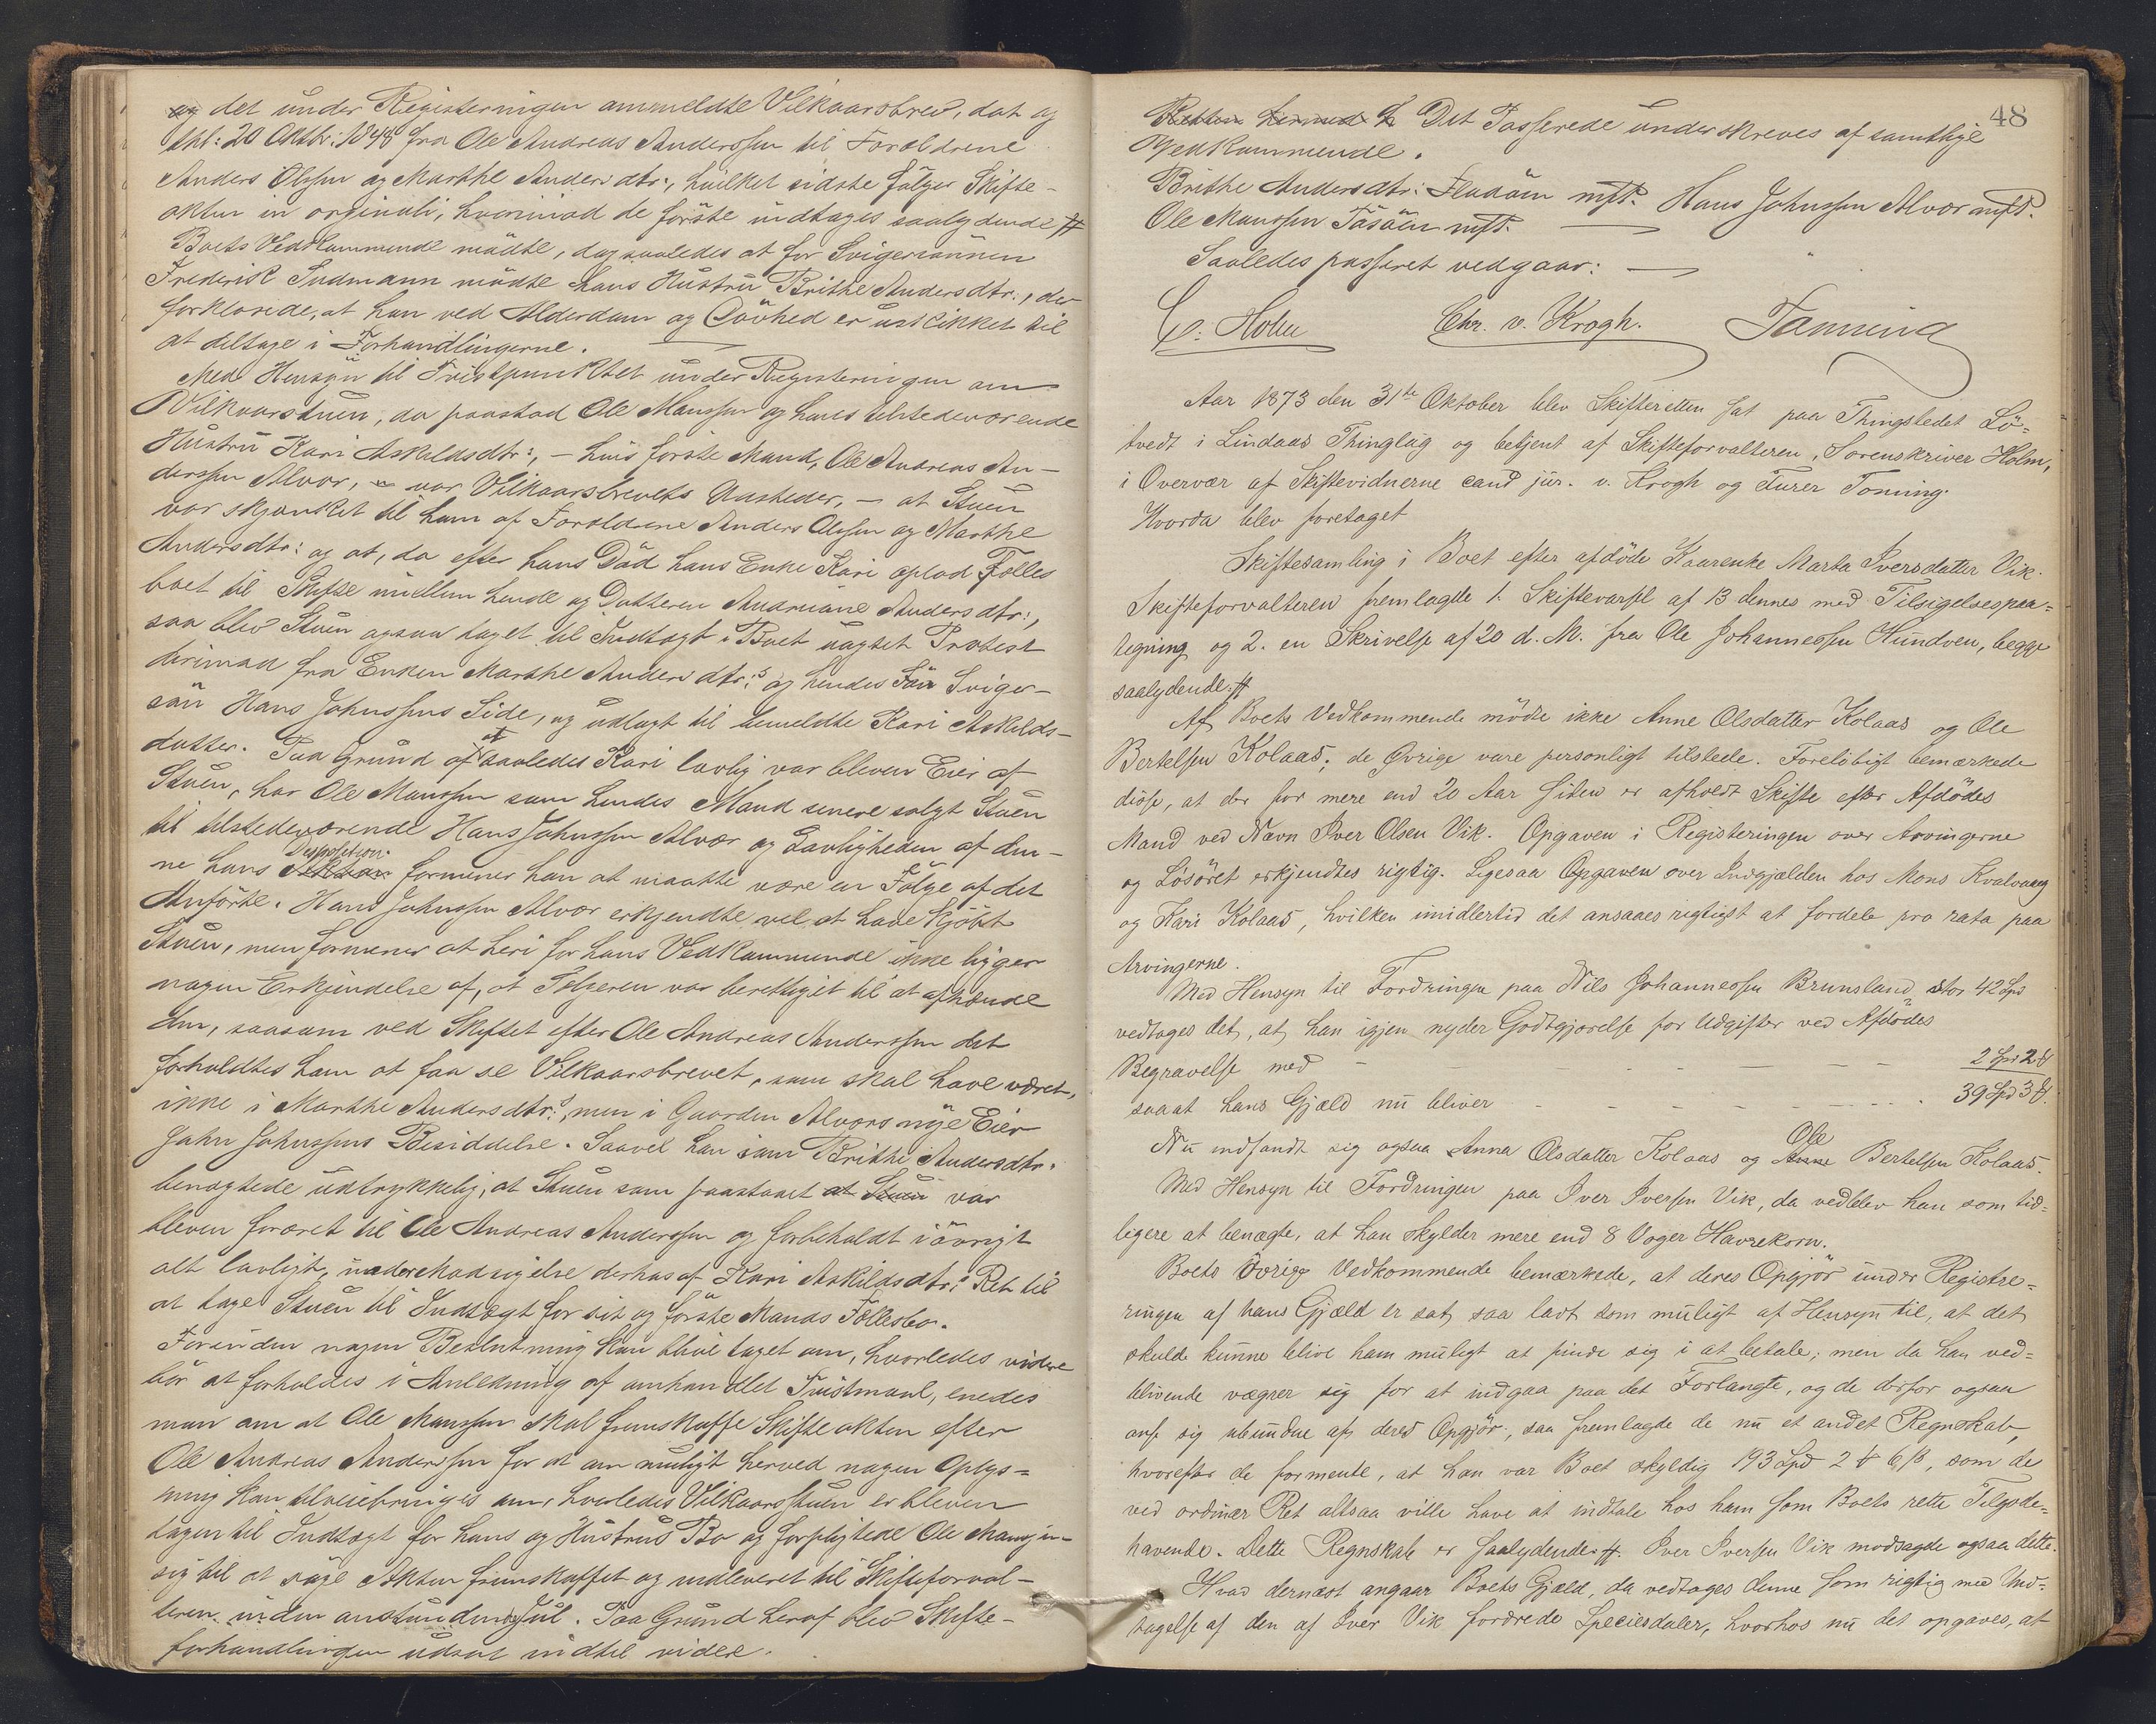 og det under Registeringen anmeldte Vilkaarsbrev, dat og
thl: 20 Oktbr: 1848 fra Ole Andreas Anderssen til Forældrene
Anders Olssen og Marthe Andersdtr:, hvilket sidste følger Skifte-
akten in originali, hvorimod de første indtages saalydende #
Boets Vedkommende mødte, dog saaledes at for Svigersønnen
Frederik Sudmann mødte hans Hustru Brithe Andersdtr:, der
forklarede, at han ved Alderdom og Døvhed er uskikket til
at deltage i Forhandlingerne.
Med Hensyn til Tvistpunktet under Registeringen om
Vilkaarstuen, da paastod Ole Monssen og hans tilstedeværende
Hustru Kari Askildsdtr:, – hvis første Mand, Ole Andreas An-
derssen Alvær, var Vilkaarsbrevets Udsteder, – at Stuen
var skjænket til ham af Forældrene Anders Olssen og Marthe
Andersdtr: og at, da efter hans Død hans Enke Kari oplod Fælles
boet til Skifte mellem hende og Datteren Andreane Andersdtr:,
saa blev Stuen ogsaa taget til Indtægt i Boet uagtet Protest
derimod fra Enken Marthe Andersdtr:s og hendes Sviger-
søn Hans Johnssens Side, og udlagt til bemeldte Kari Askilds-
datter. Paa Grund af at saaledes Kari lovlig var bleven Eier af
Stuen, har Ole Monssen som hendes Mand senere solgt Stuen
til tilstedeværende Hans Johnssen Alvær og Lovligheden af den-
ne hans Disposition formener han at maatte være en Følge af det
Anførte. Hans Johnssen Alvær erkjendte vel at have kjøbt
Stuen, men formener at heri for hans Vedkommende ikke ligger
nogen Erkjendelse af, at Sælgeren var berettiget til at afhænde
den, saasom ved Skiftet efter Ole Andreas Anderssen det
forholdtes ham at faa se Vilkaarsbrevet, som skal have været,
ikke i Marthe Andersdtr:s, men i Gaarden Alvørs nye Eier
John Johnssens Besiddelse. Saavel han som Brithe Andersdtr:
benægtede udtrykkelig, at Stuen som paastaaet at Stuen var
bleven foræret til Ole Andreas Anderssen og forbeholdt iøvrigt
alt lovligt, under Modsigelse derhos af Kari Askildsdtr:s Ret til
at tage Stuen til Indtægt for sit og første Mands Fællesbo.
Forinden nogen Beslutning kan blive taget om, hvorledes videre
bør at forholdes i Anledning af omhandlet Tvistmaal, enedes
man om at Ole Monssen skal fremskaffe Skifteakten efter
Ole Andreas Anderssen for at om muligt herved nogen Oplys=
ning kan tilveiebringes om, hvorledes Vilkaarsstuen er bleven
tagen til Indtægt for hans og Hustrus Bo og forpligtede Ole Monssen
sig til at søge Akten fremskaffet og indleveret til Skifteforval-
teren inden anstundende Jul. Paa Grund heraf blev Skifte-
forhandlingen udsat indtil videre.
48
Retten hermed h Det Passerede underskreves af samtlige
Vedkommende.
Brithe Andersdtr: Fladøen mfP. Hans Johnssen Alvær mfP.
Ole Monssen Tøsøen mfP.
Saaledes passeret vedgaar:
C. Holm Chr. v. Krogh. Tönning
Aar 1873 den 31te Oktober blev Skifteretten sat paa Thingstedet Lö=
tvedt i Lindaas Thinglag og betjent af Skifteforvalteren, Sorenskriver Holm,
i Overvær af Skiftevidnerne cand jur. v. Krogh og Furer Tönning.
Hvorda blev foretaget
Skiftesamling i Boet efter afdöde Kaarenke Marta Iversdatter Vik.
Skifteforvalteren fremlagde 1. Skiftevarsel af 13 dennes med Tilsigelsespaa=
tegning og 2. en Skrivelse af 20 d. M. fra Ole Johannessen Hundven, begge
saalydende #
Af Boets Vedkommende mödte ikke Anne Olsdatter Kolaas og Ole
Bertelsen Kolaas; de Øvrige vare personligt tilstede. Foreløbigt bemærkede
disse, at der for mere end 20 Aar siden er afholdt Skifte efter Afdödes
Mand ved Navn Iver Olsen Vik. Opgaven i Registeringen over Arvingerne
og Lösöret erkjendtes rigtig. Ligesaa Opgaven over Indgjælden hos Mons Kvalvaag
og Kari Kolaas, hvilken imidlertid det ansaaes rigtigst at fordele pro rata paa
Arvingerne.
Med Hensyn til Fordringen paa Nils Johannessen Brunsland, stor 42 Spd
vedtoges det, at han igjen nyder Godtgjørelse for Udgifter ved Afdödes
Begravelse med – – – – – – 2 Spd 2 #
saaat hans Gjæld nu bliver – – – – – – 39 Spd 3 #.
Nu indfandt sig ogsaa Anna Olsdatter Kolaas og Anne Ole Bertelsen Kolaas.
Med Hensyn til Fordringen paa Iver Iversen Vik, da vedblev han som tid=
ligere at benægte, at han skylder mere end 8 Voger Havrekorn.
Boets Övrige Vedkommende bemærkede, at deres Opgjör under Registre=
ringen af hans Gjæld er sat saa lavt som muligt af Hensyn til, at det
skulde kunne blive ham muligt at finde sig i at betale; men da han ved=
blivende vægrer sig for at indgaa paa det Forlangte, og de derfor ogsaa
anse sig ubundne af deres Opgjör, saa fremlagde de nu et andet Regnskab,
hvorefter de formente, at han var Boet skyldig 193 Spd 2 # 6 ß, som de
ved ordinær Ret altsaa ville have at indtale hos ham som Boets rette Tilgode=
havende. Dette Regnskab er saalydende #. Iver Iversen Vik modsagde ogsaa dette.
Hvad dernæst angaar Boets Gjæld, da vedtoges denne som rigtig med Und=
tagelse af den af Iver Vik fordrede Speciesdaler, hvorhos nu det opgaves, at